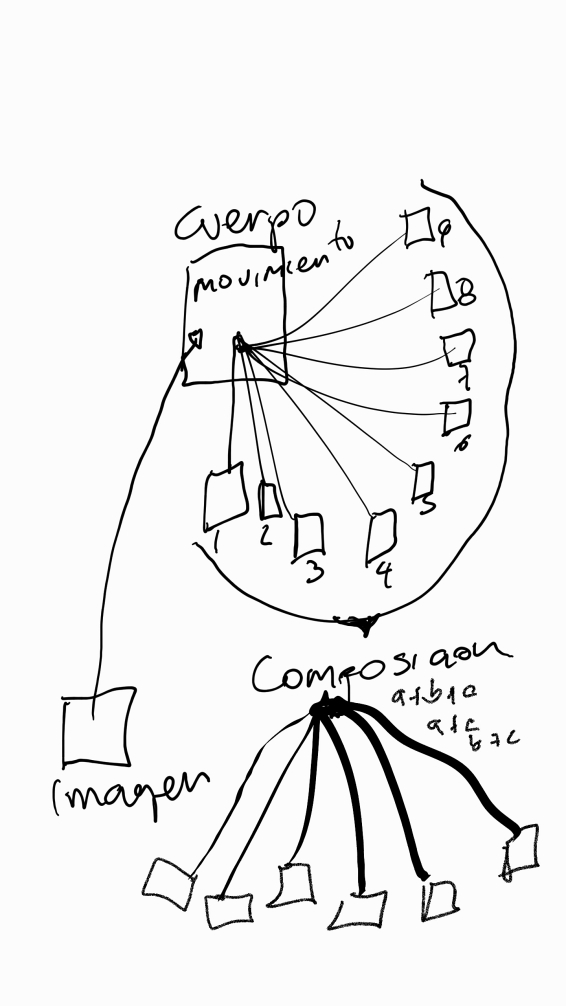 cuerpo
movimiento
9
8
7
6
5
4
3
2
1
Composicion
a+b+c
a+c
b+c
imagen